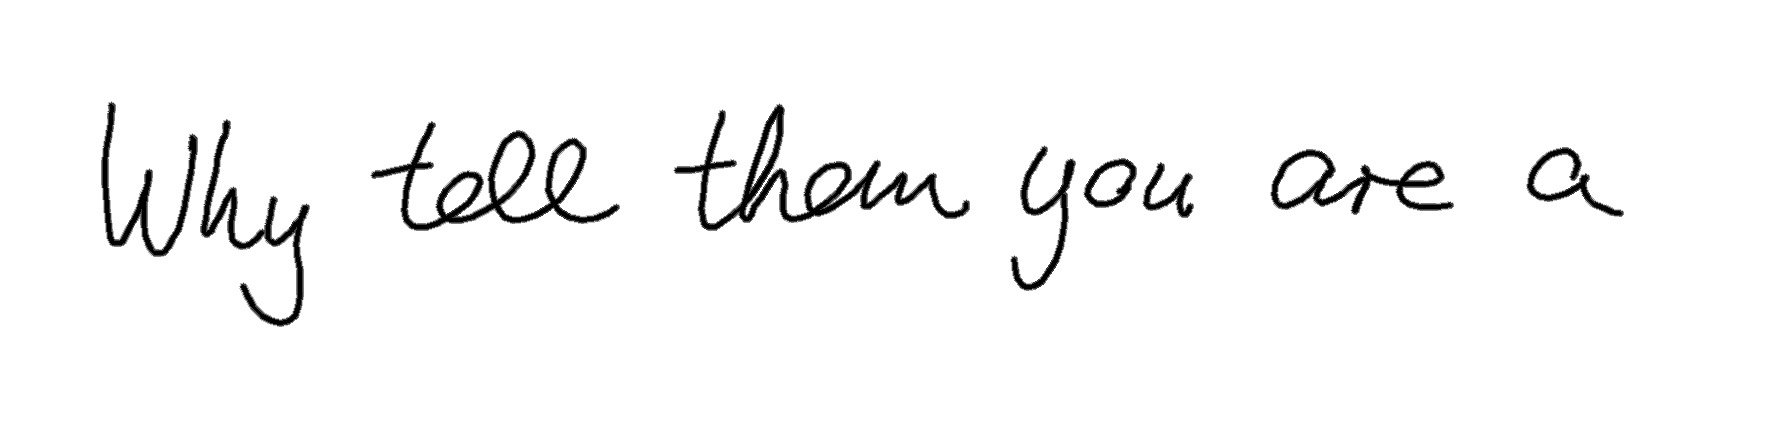 Why tell them you are a